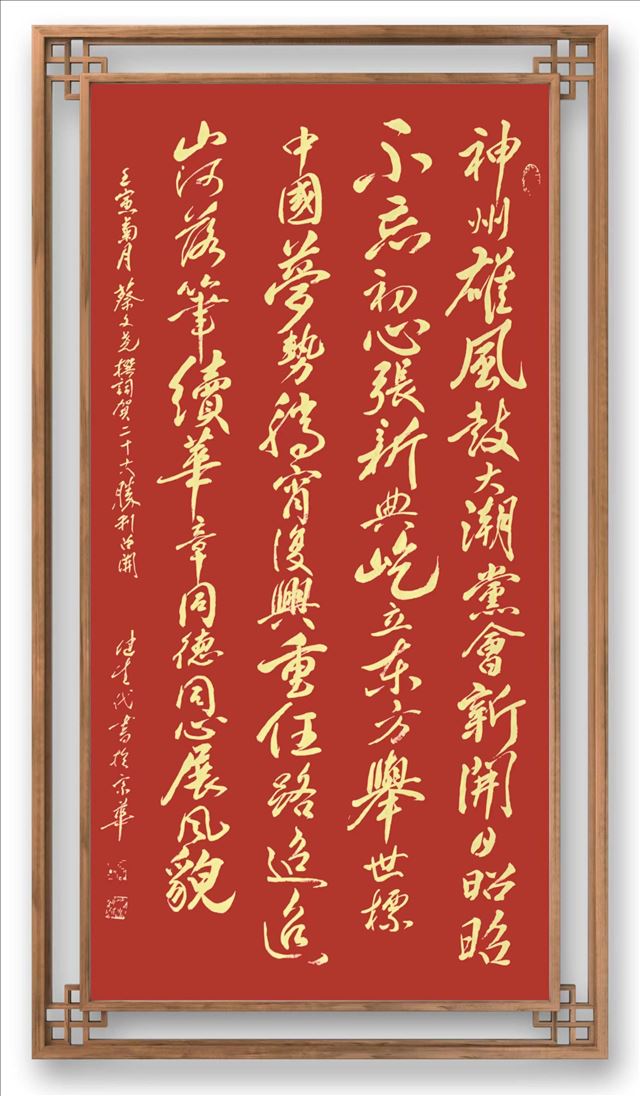 神州雄風鼓大潮黨會新開日昭昭
不忘初心張新典屹立东方舉世標
中國夢勢騰宵復興重任路迢迢
山河落筆續華章同德同心展风貌
壬寅菊月蔡文光撰詞賀二十大勝利召開
建生代書於京華